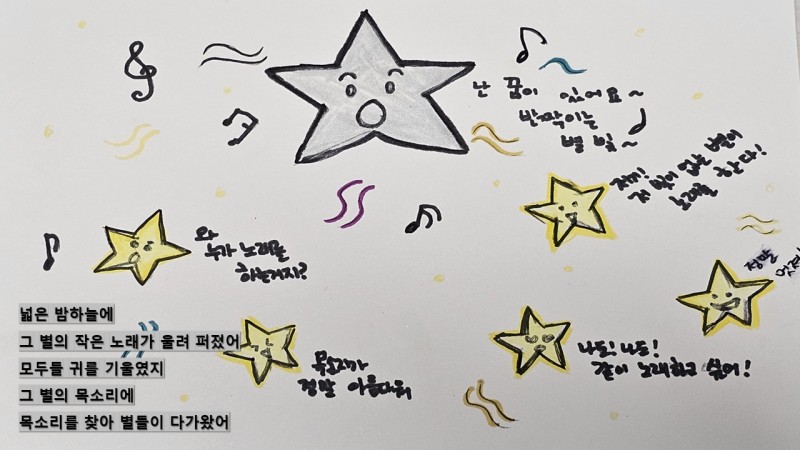 난 꿈이 있어요~
반짝이는
별 빛~
저기! 저 빛이 없는 별이
노래를 한다!
와
누가 노래를
하는거지?
정말
멋져
넓은 밤하늘에
그 별의 작은 노래가 울려 퍼졌어
모두를 귀를 기울였지
그 별의 목소리에
목소리를 찾아 별들이 다가왔어
목소리가
정말 아름다워
나도! 나도!
같이 노래하고 싶어!